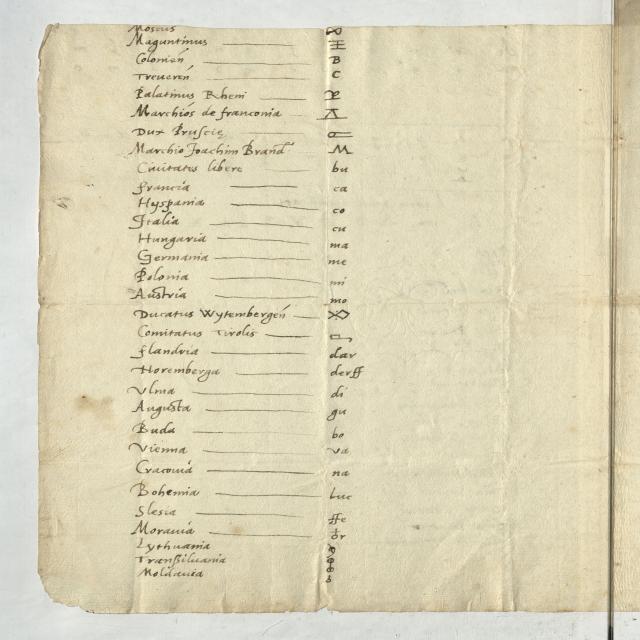 Moscus
Maguntinus
Colonien B
Treueren C
Palatinus Rheni
Marchios de franconia
Dux Prussie
Marchio Joachim Brand M
Ciuitates libere bu
francia ca
Hyspania co
Italia cu
Hungaria ma
Germania me
Polonia mi
Austria mo
Ducatus Wytembergen
Comitatus Tirolis
flandria dar
Noremberga derff
Vlma di
Augusta gu
Buda bo
Vienna va
Cracouia na
Bohemia luc
Slesia ffe
Morauia or
Lythuania
Transsiluania
Moldauia